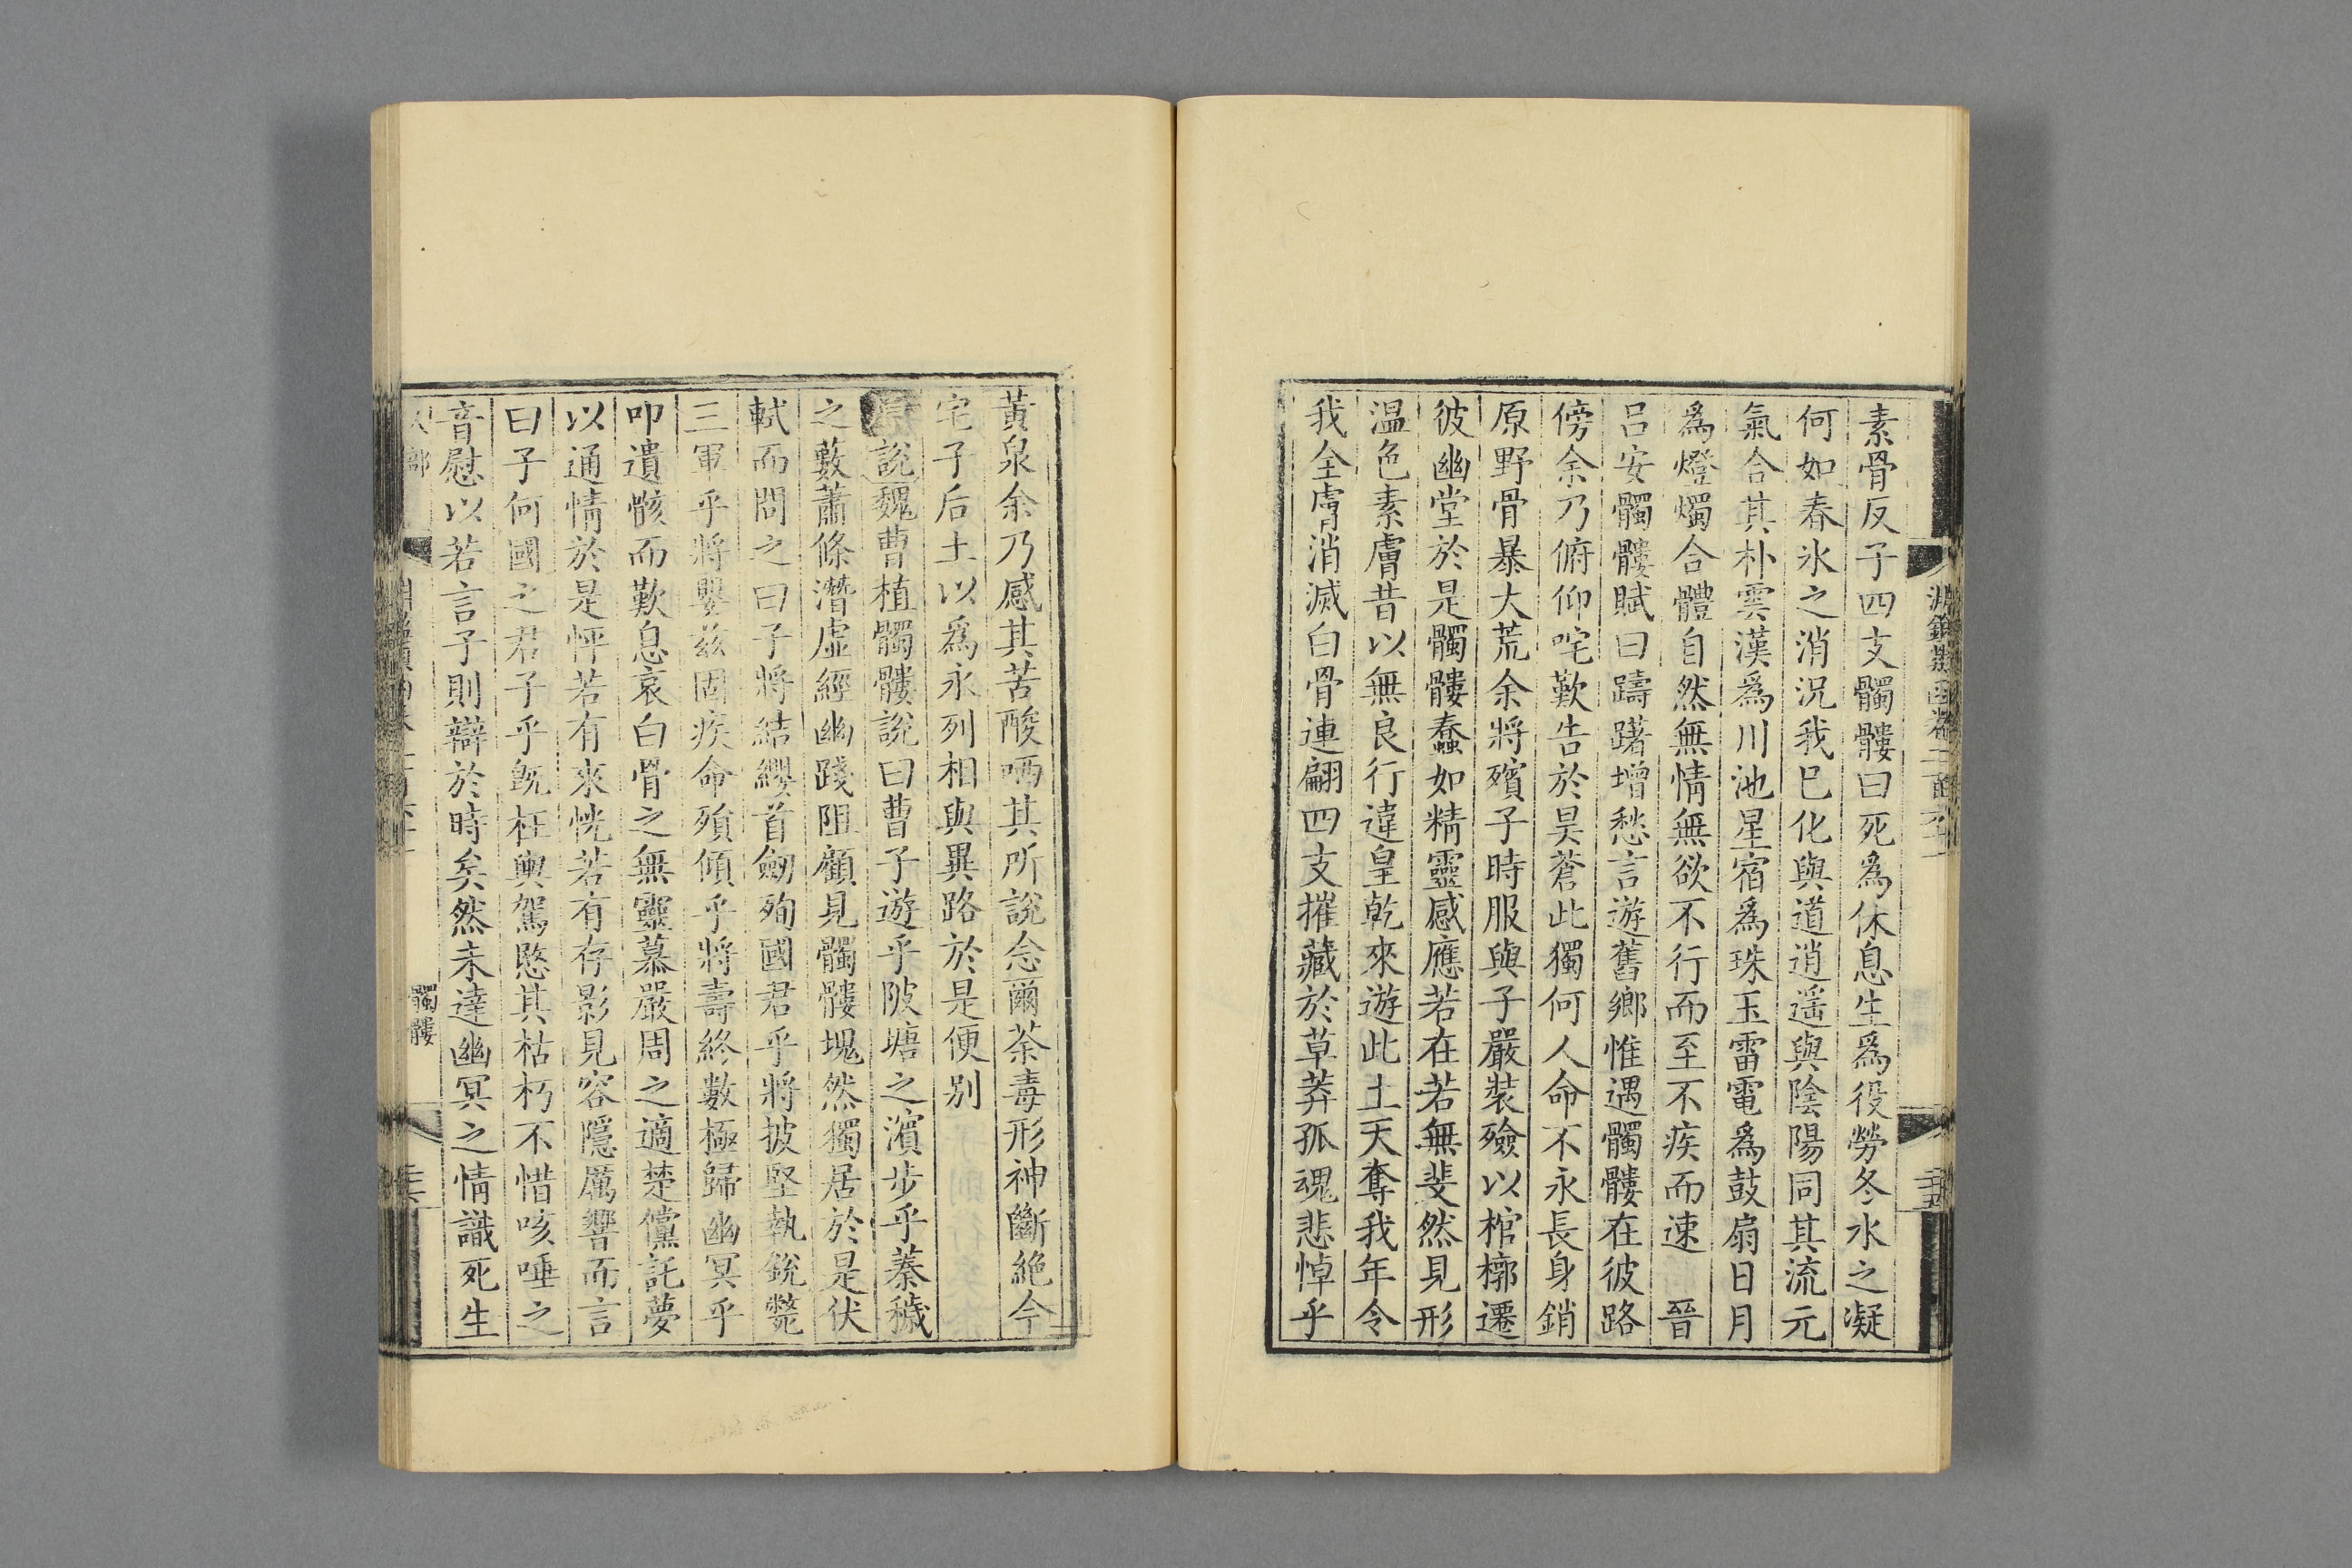 素骨反子四支髑髏曰死爲休息生爲役勞冬水之凝
何如春氷之消况我巳化與道逍遥與陰陽同其流元
氣合其朴雲漢爲川池星宿爲珠玉雷電爲鼓扇日月
爲燈燭合體自然無情無欲不行而至不疾而速　晉
呂安髑髏賦曰躊躇增愁言遊舊鄉惟遇髑髏在彼路
傍余乃俯仰咤歎告於昊蒼此獨何人命不永長身銷
原野骨暴大荒余將殯子時服與子嚴裝殮以棺槨遷
彼幽堂於是髑髏蠢如精靈感應若在若無斐然見形
温色素膚昔以無良行違皇乾來遊此土天奪我年令
我全膚消滅白骨連翩四支摧藏於草莽孤魂悲悼乎
黃泉余乃感其苦酸哂其所說念爾荼毒形神斷絶今
宅子后土以爲永列相與異路於是便别
原説魏曹植髑髏說曰曹子遊乎陂塘之濱步乎蓁穢
之藪蕭條潛虛經幽踐阻顧見髑髏塊然獨居於是伏
軾而問之曰子將結纓首劒殉國君乎將披堅執銳斃
三軍乎將嬰兹固疾命殞傾乎將壽終數極歸幽冥乎
叩遺骸而歎息哀白骨之無靈慕嚴周之適楚儻託夢
以通情於是怦若有來恍若有存影見容隱厲響而言
曰子何國之君子乎旣枉輿駕愍其枯朽不惜咳唾之
音慰以若言子則辯於時矣然未達幽冥之情識死生
髑髏